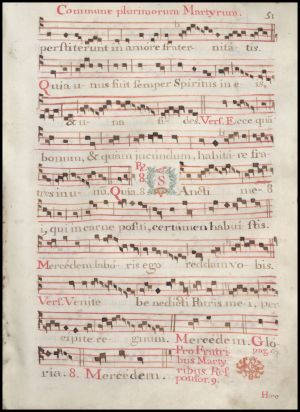 Commune plurimorum Martyrum. 51
perstiterunt in amore frater- nita- tis.
Quia u- nus fuit semper Spiritus in e- is,
& u- na fi- des. Vers. Ecce quā
bonum, & quam jucundum, habitá-re fra-
tres in u- nū. Quia. 8. SAncti me- 8
i, qui in carne positi, certamen habui- stis.
Mercedem labó- ris ego reddam vo- bis.
Vers. Venite be nedícti Patris me- i, per
cipite re- gnum. Mercedem. Glo
ria. 8. Mercedem.
Pro Fratri
bus Marty
ribus. Res
ponsor. 9.
pag. 67
Hæc